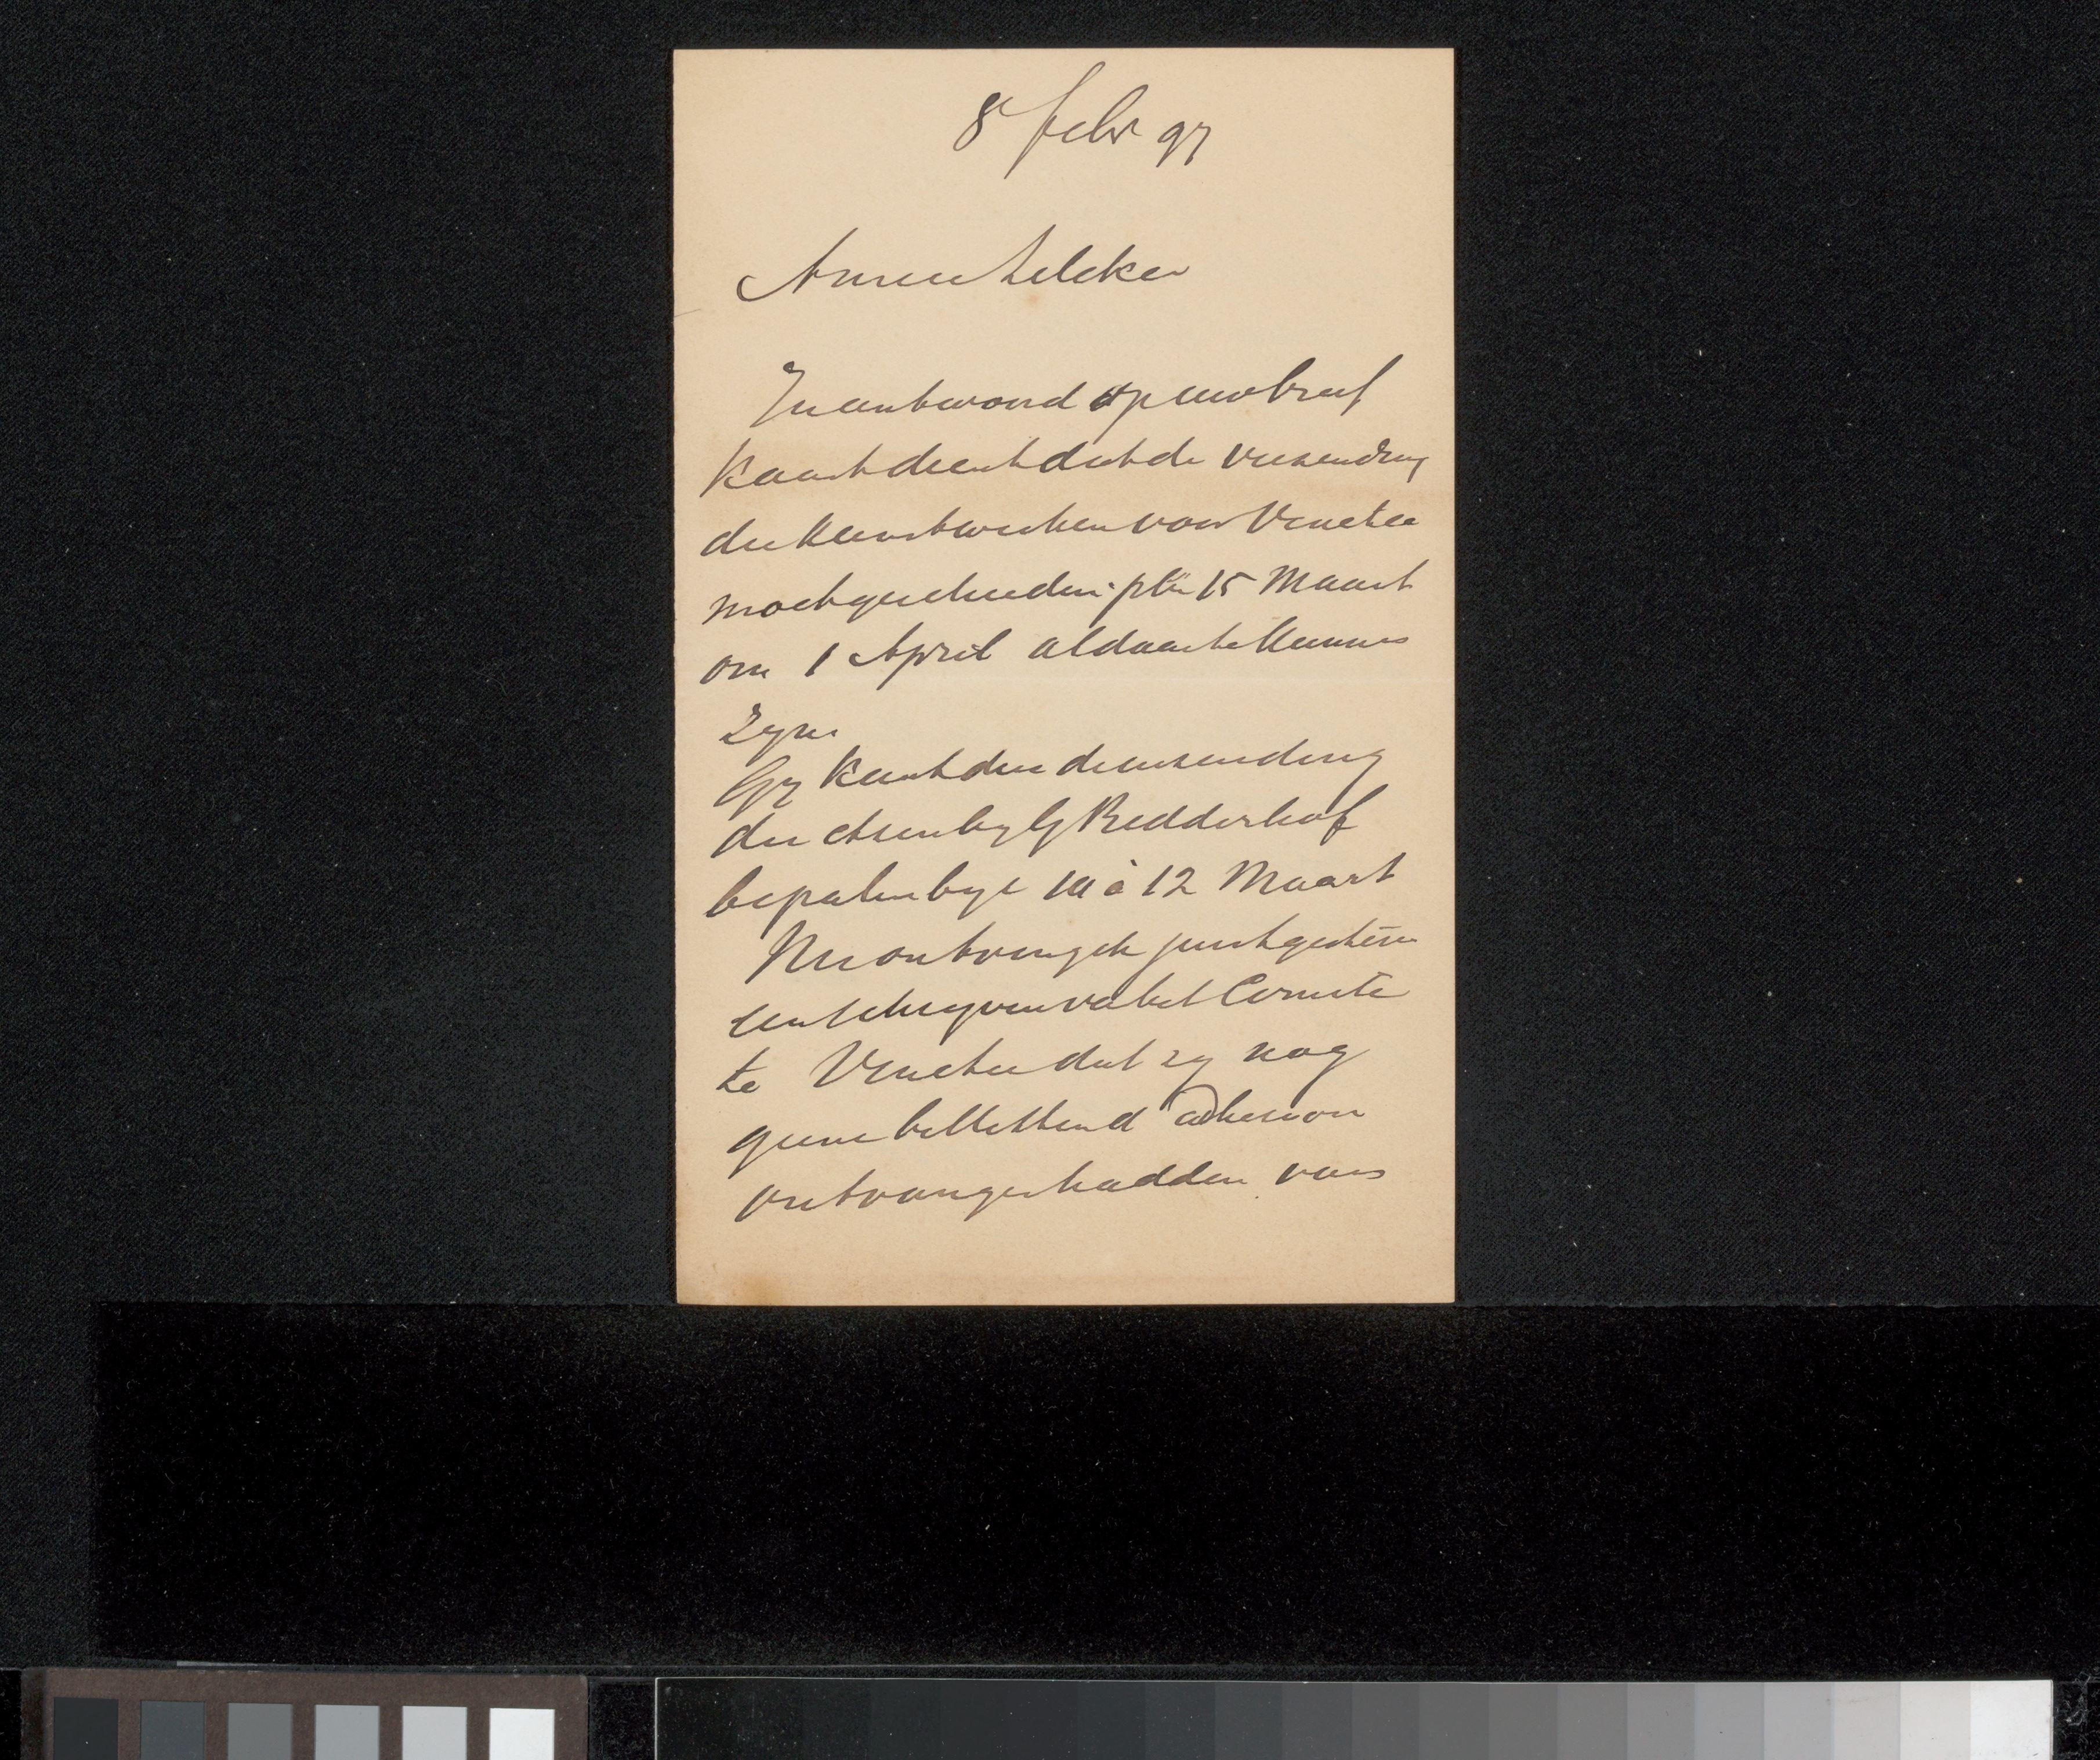 8 febr 97
Amice Zilcken
In antwoord op uw brief
kaart dient dat de verzending
der kunstwerken voor Venetie
moet geschieden plm 15 Maart
om 1 April aldaar te kunnen
Zyn.
Gy kunt dus de inzending
der etsen by G Ridderhof
bepalen byv 10 à 12 Maart
Nu ontving ik juist gisteren
een schryven v/h het Comite
te Venetie dat zy nog
geene bulletin d'adhesion
ontvangen hadden van